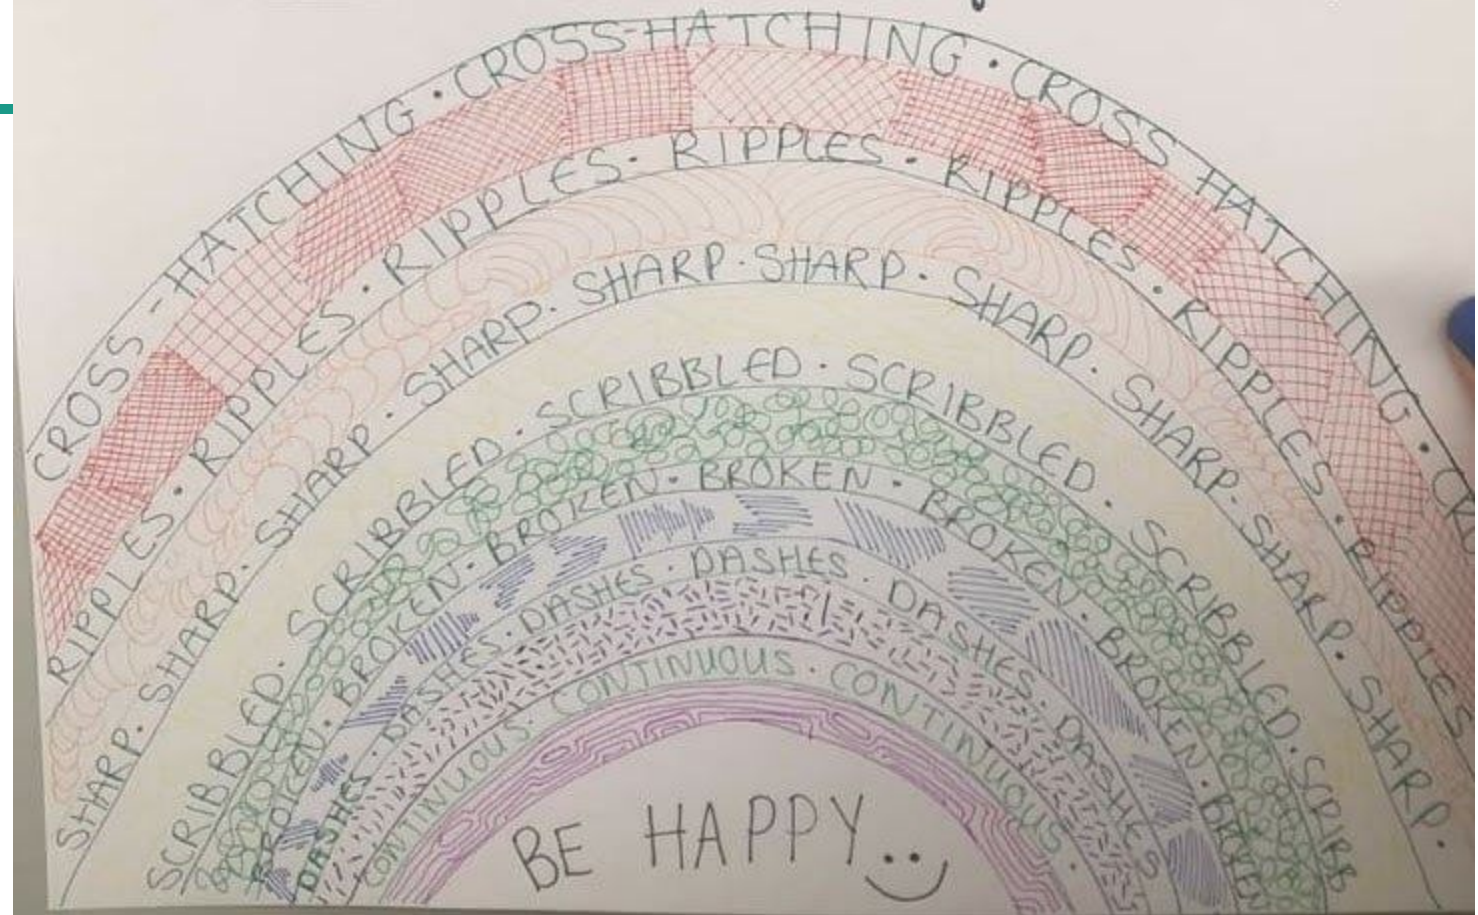 CROSS-HATCHING · CROSS-HATCHING · CROSS HATCHING · CRO
RIPPLES · RIPPLES · RIPPLES · RIPPLES · RIPPLES · RIPPLES · RIPPLES
SHARP · SHARP · SHARP · SHARP · SHARP · SHARP · SHARP · SHARP · SHARP · SHARP ·
SCRIBBLED · SCRIBBLED · SCRIBBLED · SCRIBBLED · SCRIBBLED · SCRIBB
BROKEN · BROKEN · BROKEN · BROKEN · BROKEN · BROKEN · BROKEN
DASHES · DASHES · DASHES · DASHES · DASHES · DASHES
CONTINUOUS · CONTINUOUS · CONTINUOUS ·
BE HAPPY :)